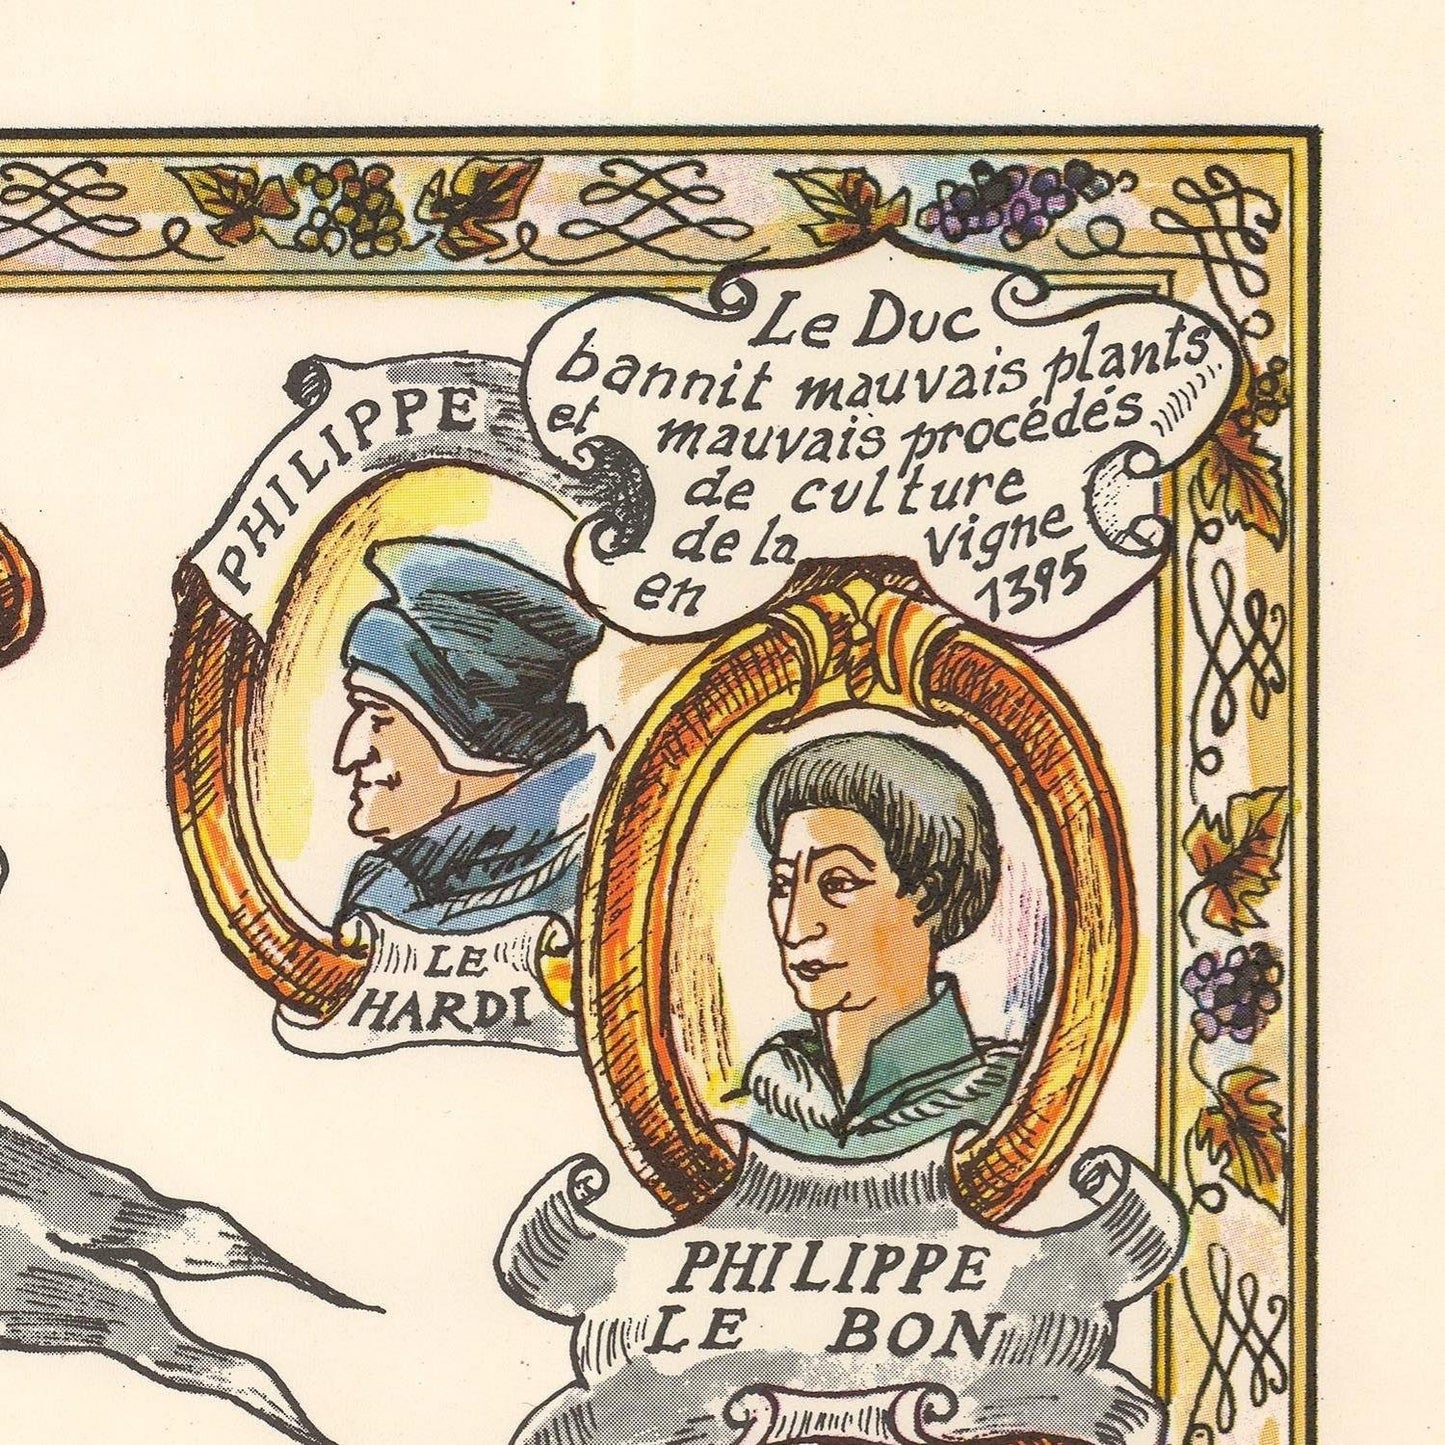 Le Duc
bannit mauvais plants
et mauvais procédés
de culture
de la vigne
en 1395
PHILIPPE
LE
HARDI
PHILIPPE
LE BON